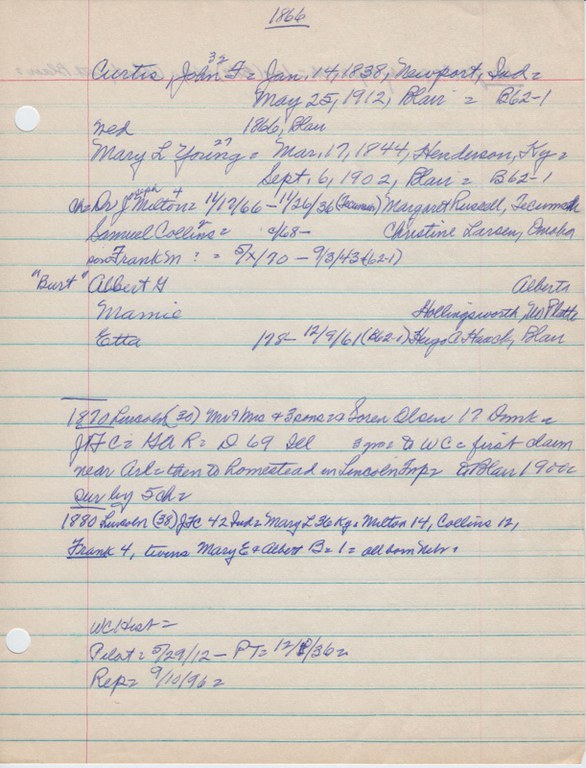 1866
32
Curtis, John F = Jan. 14, 1838, Newport, Ind =
May 25, 1912, Blair = B62-1
Wed 1866, Blair
27
Mary L Young = Mar. 17, 1844, Henderson, Ky =
Sept. 6, 1902, Blair = B62-1
Ch = Dr Joseph Milton = 11/17/66 - 11/26/36 Margaret Russell, Tecumseh
Samuel Collins = c/68 - Christine Larsen, Omaha
son Frank M : = 5/x/70 - 9/3/43 (62-1)
"Burt" Albert G Alberta
Mamie Hollingsworth, No Platte
Etta /78 - 12/9/61 (B62-1) Hugo A Haack, Blair
1870 Lincoln (30) Mr & Mrs & 3 sons = Soren Olsen 17 Dmk =
JFC = GAR = D 69 Ill to WC = first claim
near Arl = then to homestead in Lincoln Twp = to Blair 1900 =
sur by 5 ch =
1880 Lincoln (38) JFC 42 Ind = Mary L 36 Ky = Milton 14, Collins 12,
Frank 4, twins Mary E & Albert B = 1 = all born Nebr =
WC Hist =
Pilot = 5/29/12 - PT = 12/ /36 =
Rep = 9/10/96 =